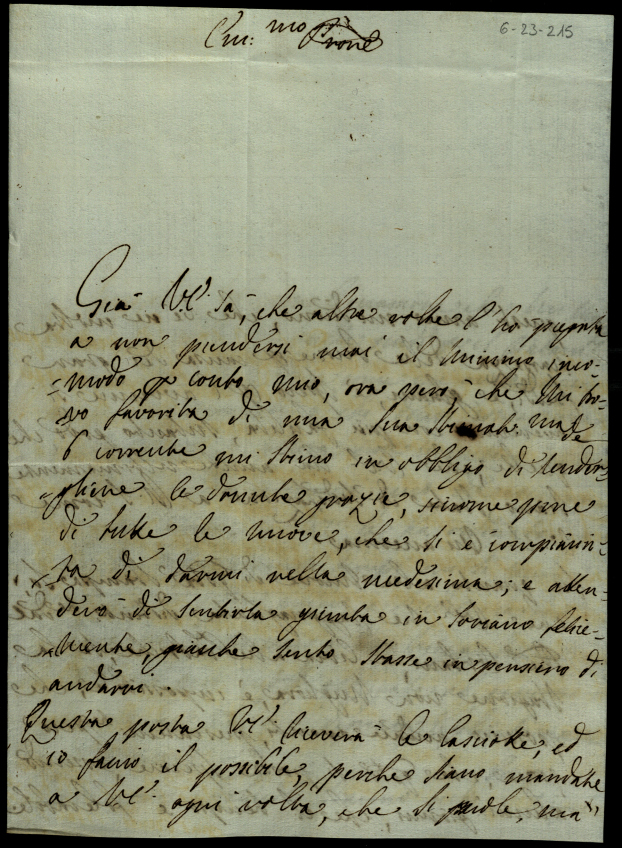 6-23-215
Em:mo Prone
Già V.E. sà, che altre volte l'ho pregata
a non prendersi mai il minimo inco-
=modo p conto mio, ora però, che mi tro-
=vo favorita di una sua stimat:ma de
6 corrente mi stimo in obbligo di render-
=gliene le dovute grazie, siccome pure
di tutte le nuove, che si è compiaciu-
=ta di darmi nella medesima; e atten-
derò di sentirla giunta in Soriano felice-
=mente, giacche sento stasse in pensiero di
andarvi
Questa posta V.E. riceverà le lasciotte, ed
io faccio il possibile, perche siano mandate
a V.E. ogni volta, che si puole, ma